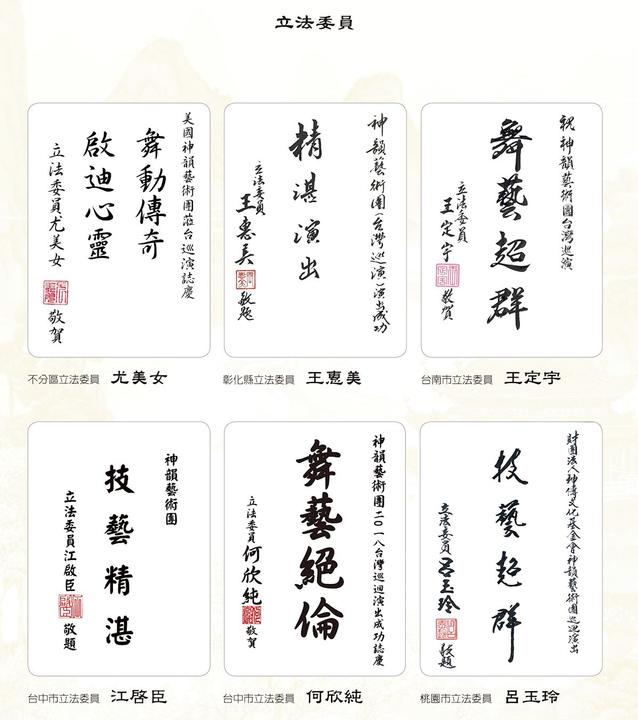 立法委員
美國神韻藝術團蒞台巡演誌慶
舞動傳奇
啟迪心靈
立法委員尤美女
敬賀
不分區立法委員 尤美女
神韻藝術團(台灣巡演)演出成功
精湛演出
立法委員
王惠美
敬題
彰化縣立法委員 王惠美
祝神韻藝術團台灣巡演
舞藝超群
立法委員
王定宇
敬賀
台南市立法委員 王定宇
神韻藝術團
技藝精湛
立法委員江啟臣
敬題
台中市立法委員 江啓臣
神韻藝術團二〇一八台灣巡迴演出成功誌慶
舞藝絕倫
立法委員何欣純
敬賀
台中市立法委員 何欣純
財團法人神傳文化基金會神韻藝術團巡迴演出
技藝超群
立法委員呂玉玲
敬題
桃園市立法委員 呂玉玲